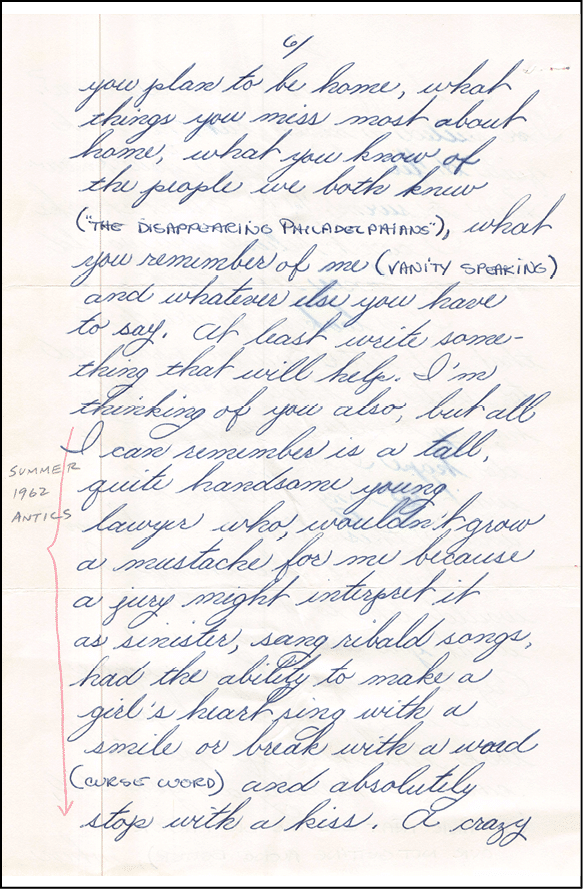 6/
you plan to be home, what
things you miss most about
home, what you know of
the people we both knew
("THE DISAPPEARING PHILADELPHIANS"), what
you remember of me (VANITY SPEAKING)
and whatever else you have
to say. At least write some-
thing that will help. I'm
thinking of you also, but all
I can remember is a tall,
quite handsome young
lawyer who wouldn't grow
a mustache for me because
a jury might interpret it
as sinister, sang ribald songs,
had the ability to make a
girl's heart sing with a
smile or break with a word
(CURSE WORD) and absolutely
stop with a kiss. A crazy
SUMMER
1962
ANTICS